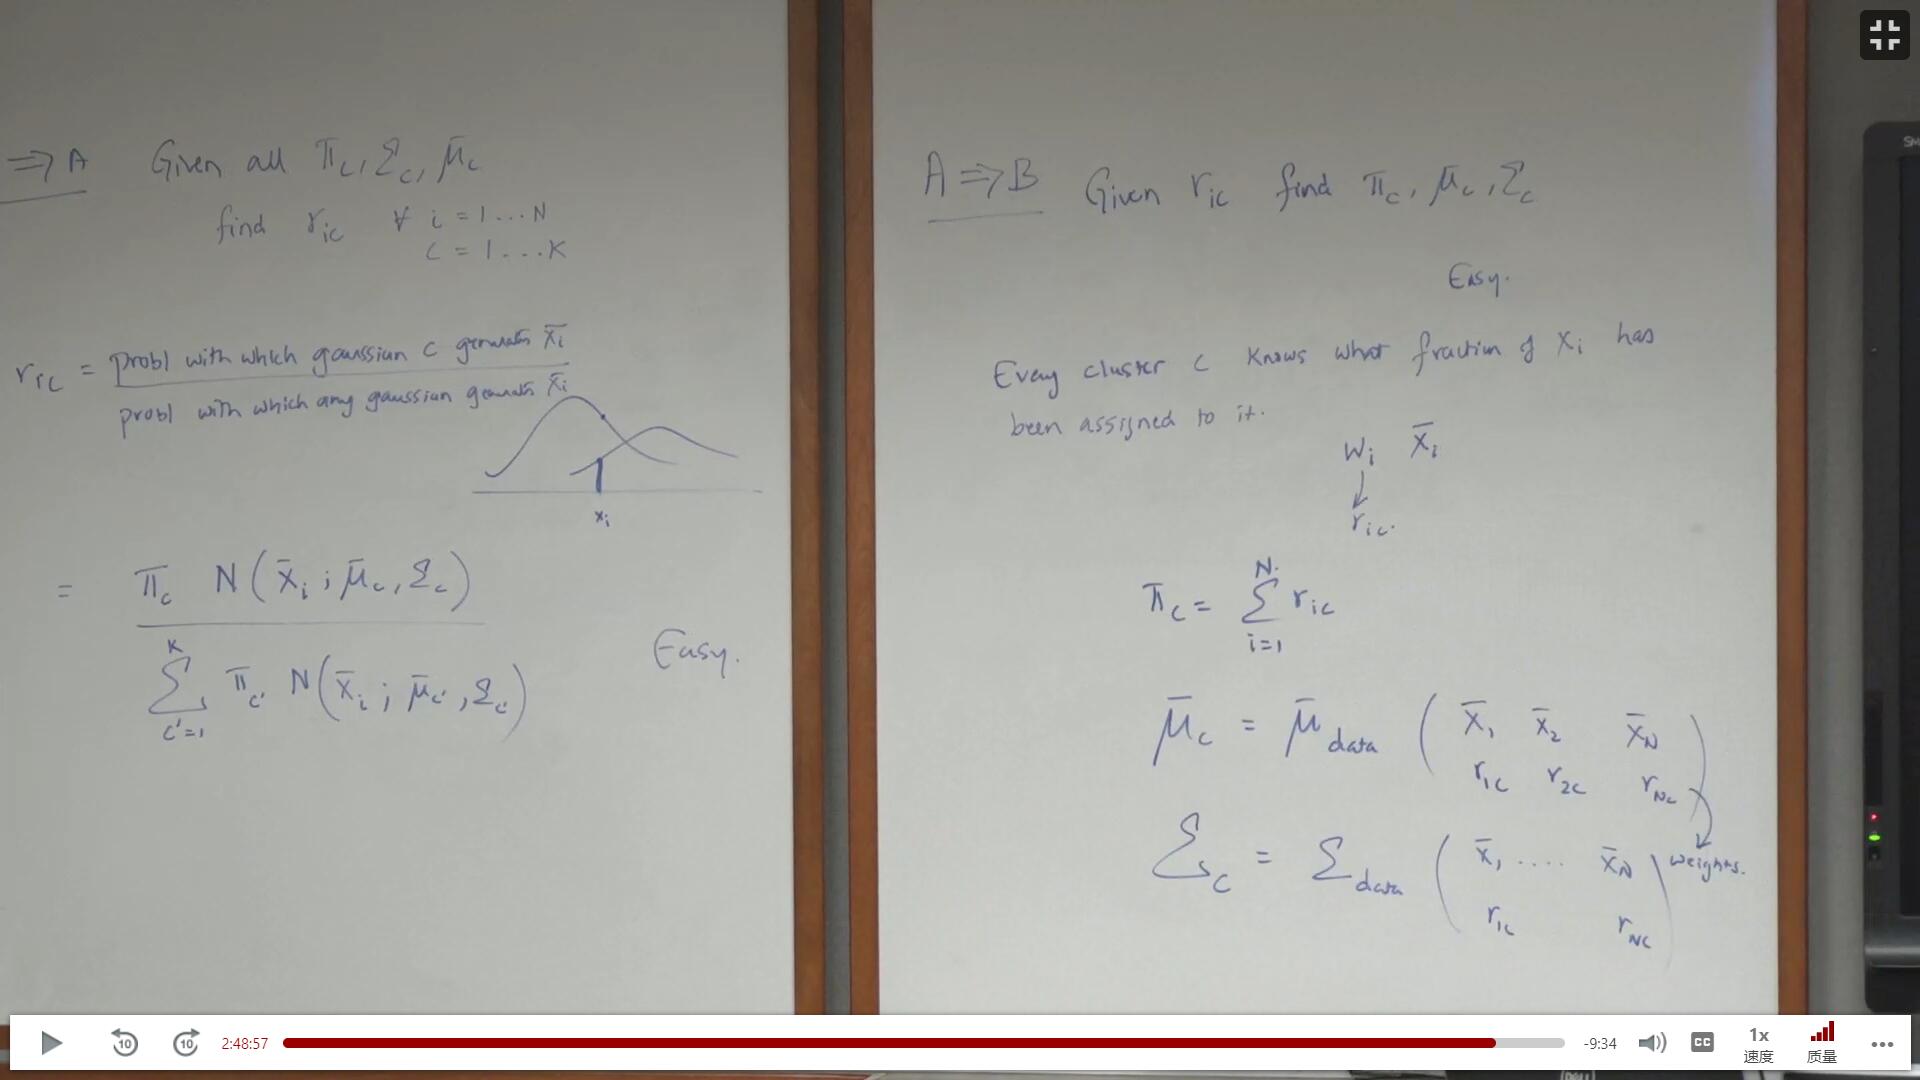 ⇒ A Given all πc, Σc, μ̄c
find ric ∀ i = 1...N
c = 1...K
ric = probl with which gaussian c generates x̄i
probl with which any gaussian generates x̄i
xi
= πc N(x̄i; μ̄c, Σc)
K
Σ πc' N(x̄i; μ̄c', Σc')
c'=1
Easy.
A ⇒ B Given ric find πc, μ̄c, Σc
Easy.
Every cluster c knows what fraction of xi has
been assigned to it.
wi x̄i
ric.
N
πc = Σ ric
i=1
μ̄c = μ̄data ( x̄1 x̄2 x̄N )
r1c r2c rNc
Σc = Σdata ( x̄1 .... x̄N ) weights.
r1c rNc
SM
10 10 2:48:57 -9:34 CC 1x
速度 质量